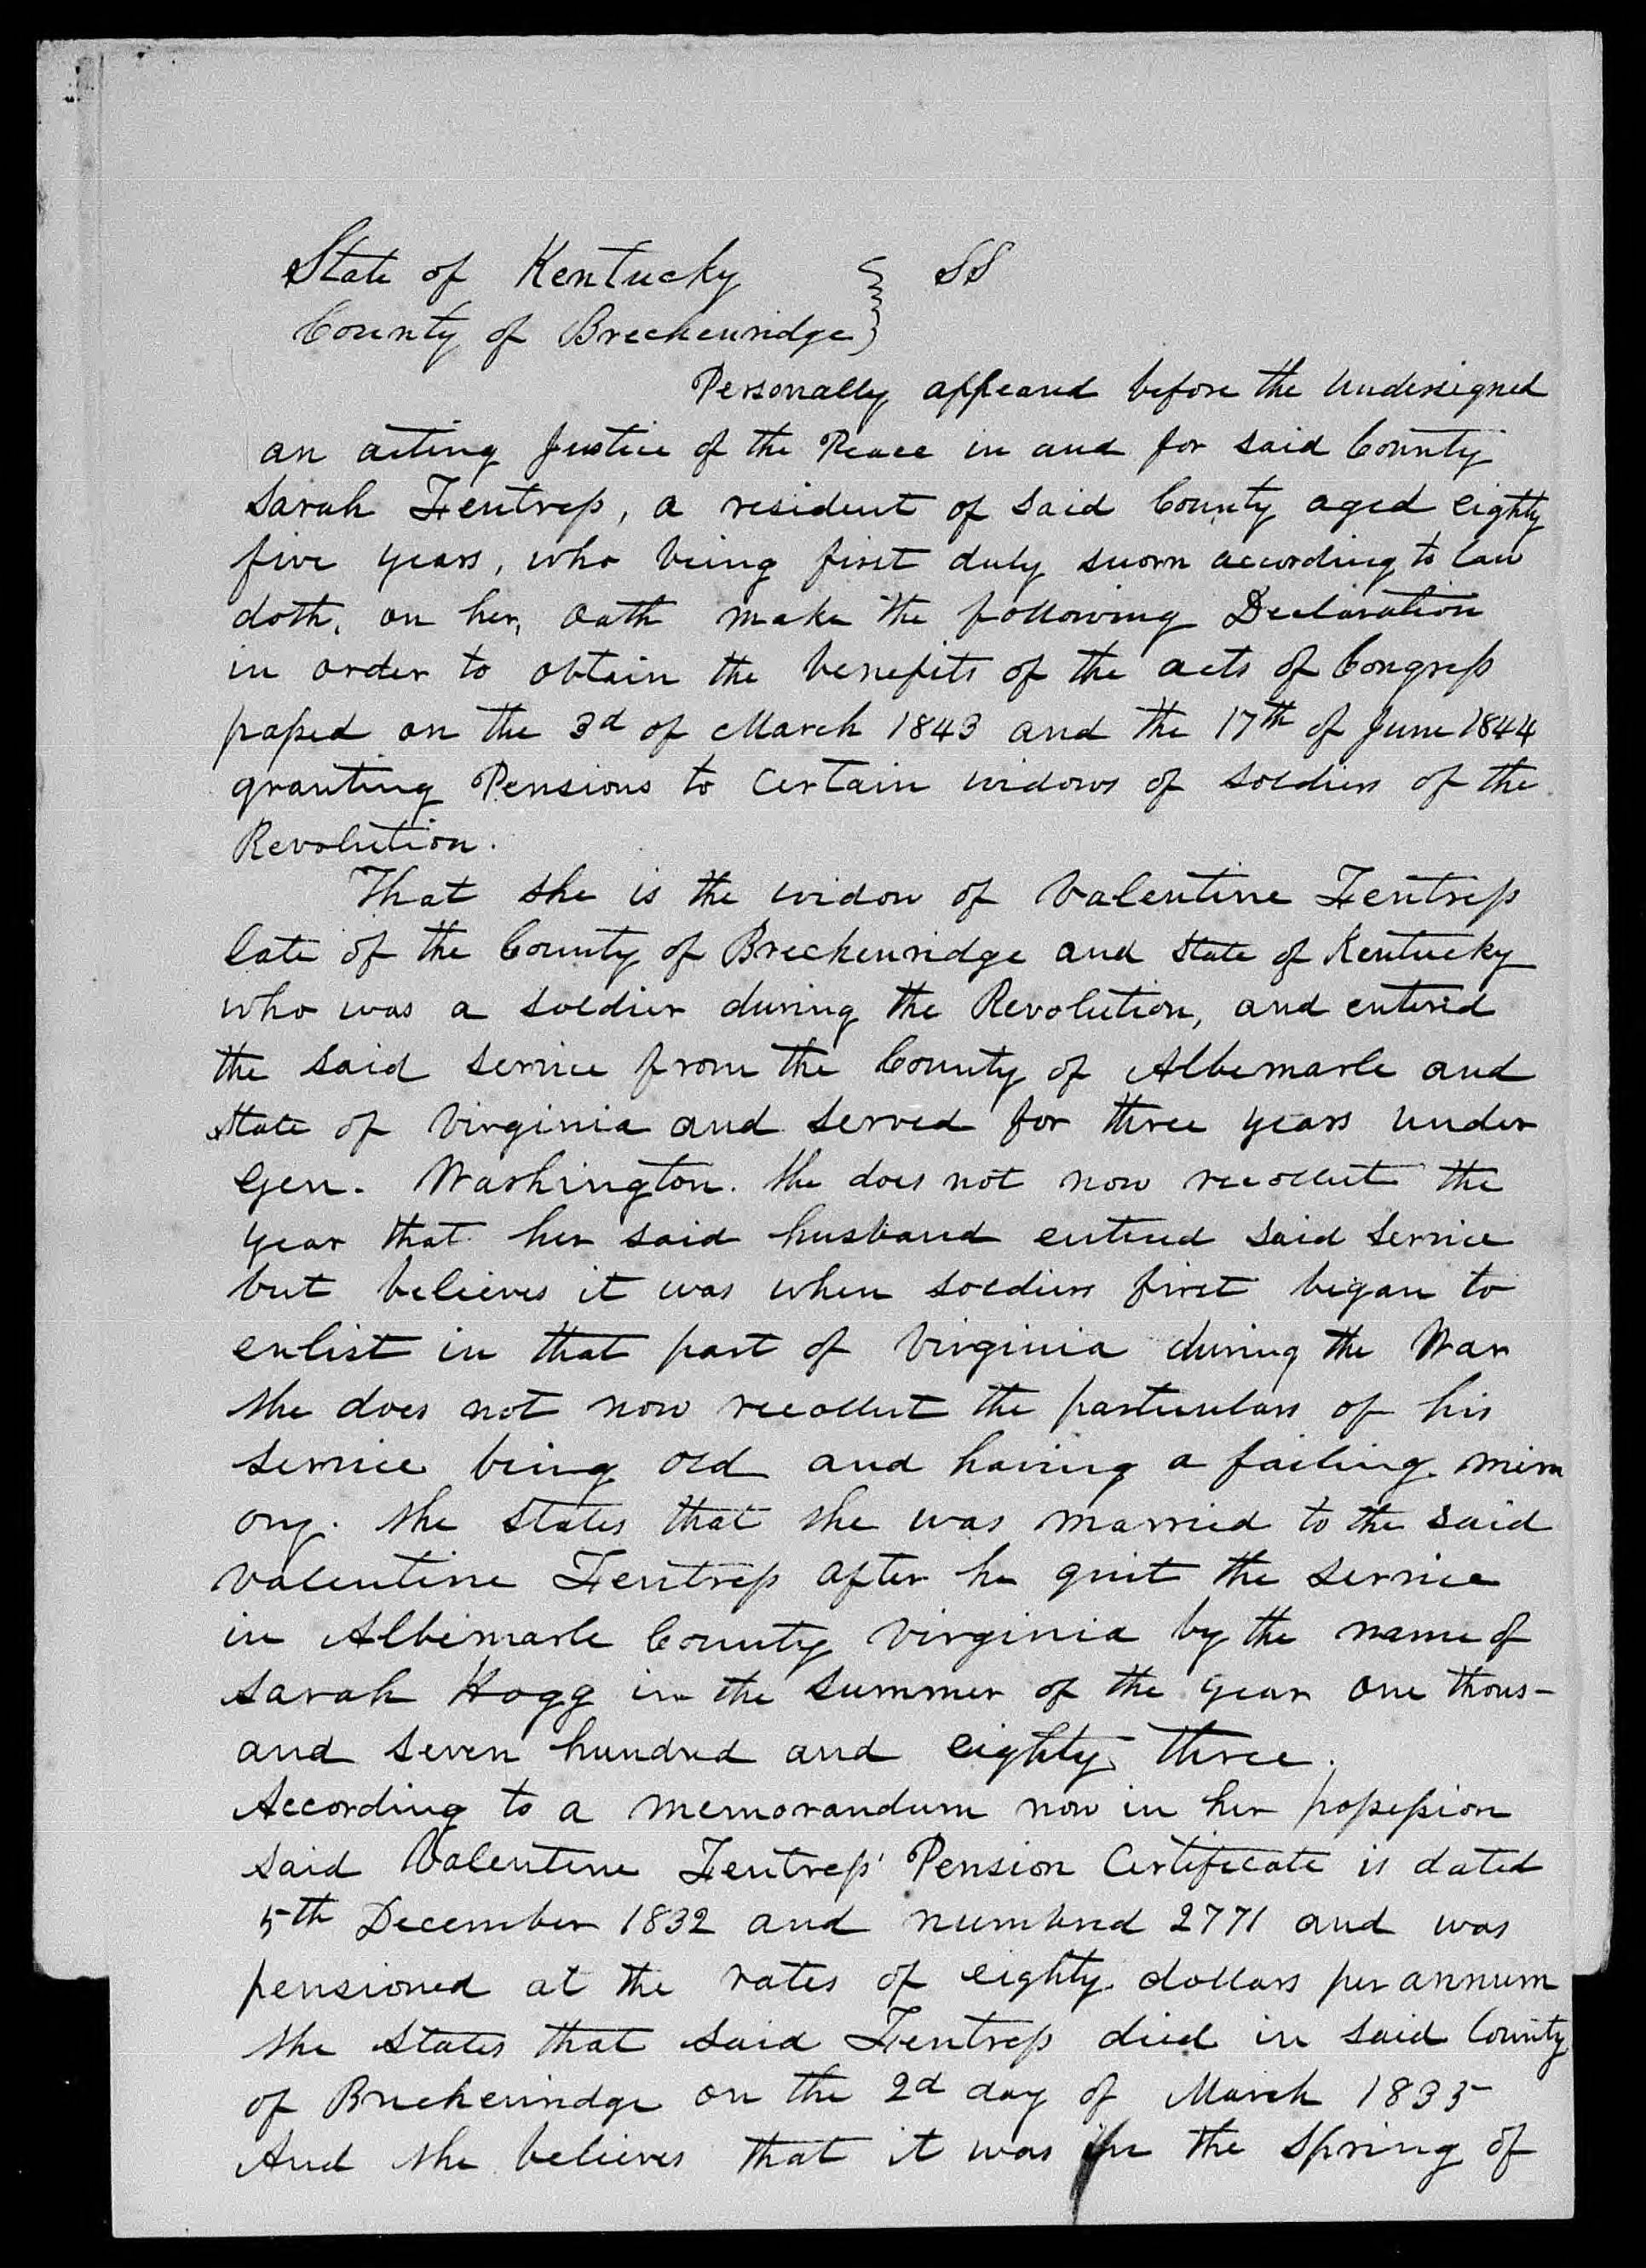 State of Kentucky } SS
County of Breckenridge }
Personally appeared before the undersigned
an acting Justice of the Peace in and for said County
Sarah Fentress, a resident of said County aged eighty
five years, who being first duly sworn according to law
doth, on her, oath make the following Declaration
in order to obtain the benefits of the acts of Congress
passed on the 3d of March 1843 and the 17th of June 1844
granting Pensions to certain widows of soldiers of the
Revolution.
That she is the widow of Valentine Fentress
late of the County of Breckenridge and State of Kentucky
who was a soldier during the Revolution, and entered
the said service from the County of Albemarle and
State of Virginia and served for three years under
Gen. Washington. She does not now recollect the
year that her said husband entered said service
but believes it was when soldiers first began to
enlist in that part of Virginia during the War
She does not now recollect the particulars of his
service being old and having a failing mem
ory. She states that she was married to the said
Valentine Fentress after he quit the service
in Albemarle County Virginia by the name of
Sarah Hogg in the summer of the year one thous-
and seven hundred and eighty three.
According to a memorandum now in her possession
said Valentine Fentress' Pension Certificate is dated
5th December 1832 and numbered 2771 and was
pensioned at the rates of eighty dollars per annum
She states that said Fentress died in said County
of Breckenridge on the 2d day of March 1835
And she believes that it was in the Spring of